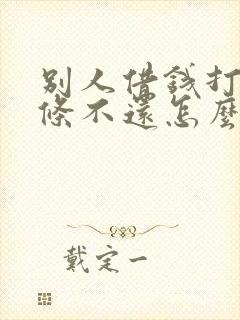 别人借錢打
條不還怎麼
戴定一